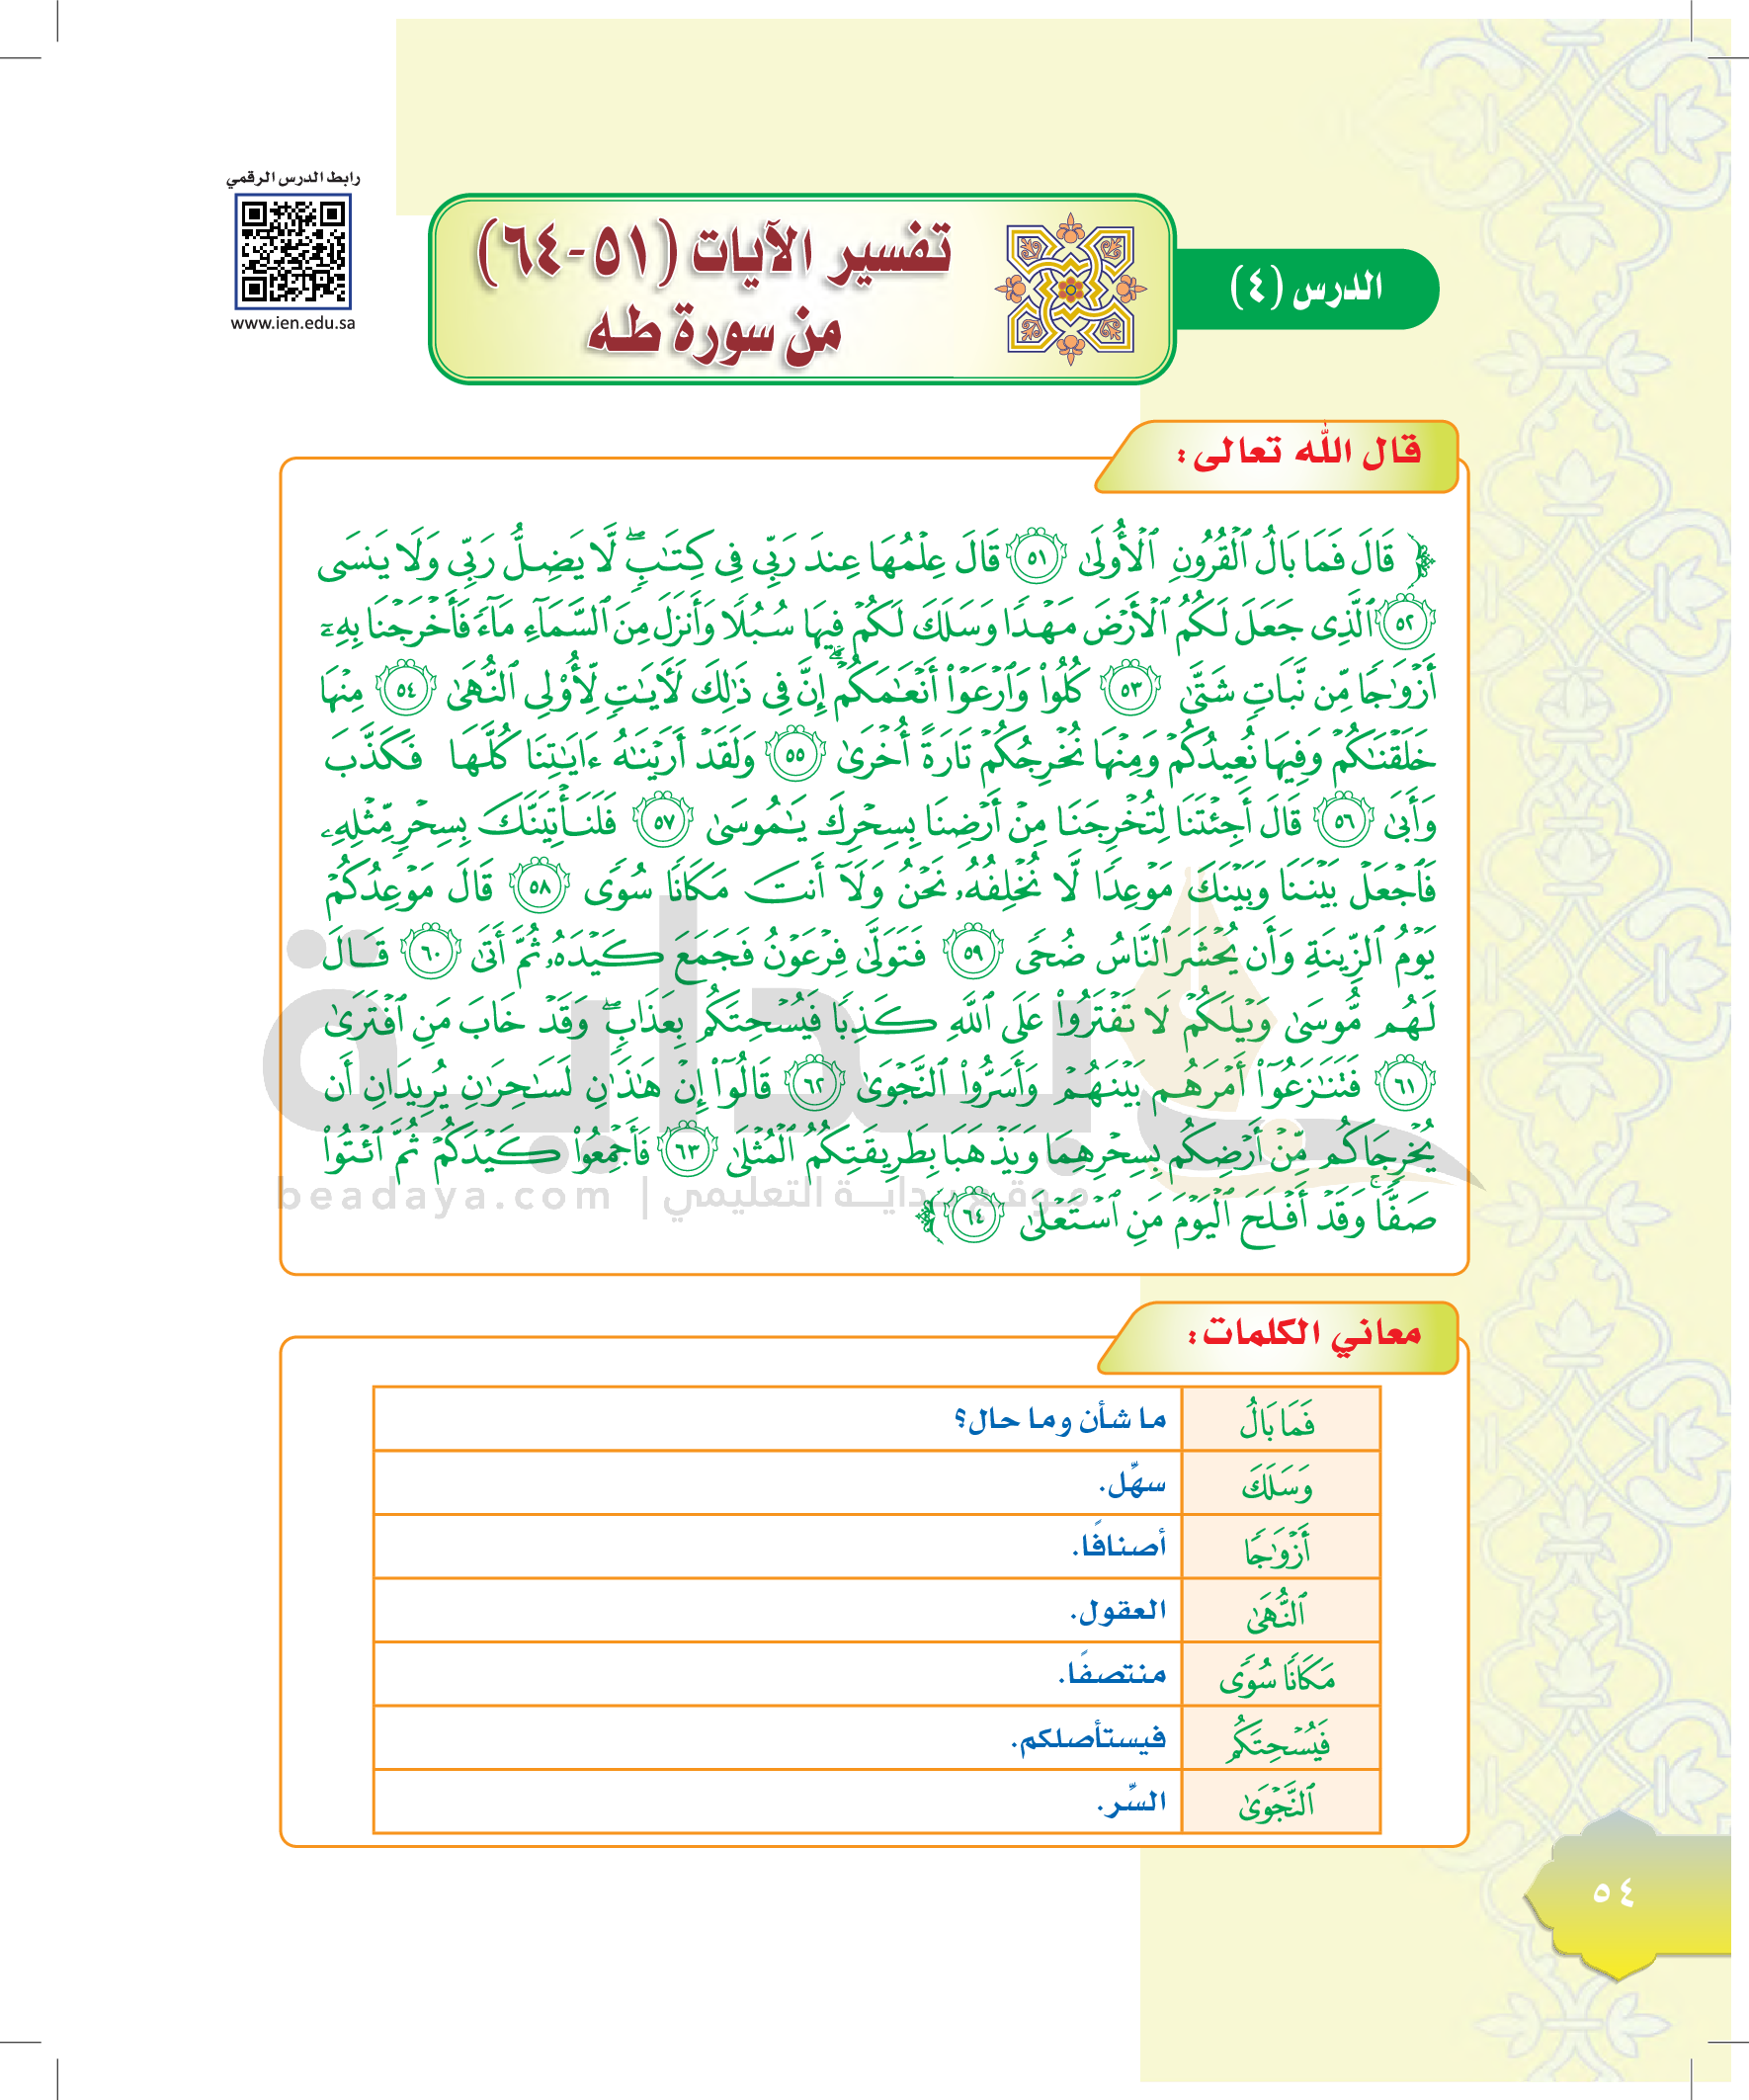 رابط الدرس الرقمي
www.ien.edu.sa
الدرس (٤)
تفسير الآيات (٥١-٦٤)
من سورة طه
قال الله تعالى:
﴿ قَالَ فَمَا بَالُ ٱلْقُرُونِ ٱلْأُولَىٰ ٥١ قَالَ عِلْمُهَا عِندَ رَبِّى فِى كِتَـٰبٍۖ لَّا يَضِلُّ رَبِّى وَلَا يَنسَى
٥٢ ٱلَّذِى جَعَلَ لَكُمُ ٱلْأَرْضَ مَهْدًا وَسَلَكَ لَكُمْ فِيهَا سُبُلًا وَأَنزَلَ مِنَ ٱلسَّمَآءِ مَآءً فَأَخْرَجْنَا بِهِۦٓ
أَزْوَٰجًا مِّن نَّبَاتٍ شَتَّىٰ ٥٣ كُلُوا۟ وَٱرْعَوْا۟ أَنْعَـٰمَكُمْۗ إِنَّ فِى ذَٰلِكَ لَـَٔايَـٰتٍ لِّأُو۟لِى ٱلنُّهَىٰ ٥٤ مِنْهَا
خَلَقْنَـٰكُمْ وَفِيهَا نُعِيدُكُمْ وَمِنْهَا نُخْرِجُكُمْ تَارَةً أُخْرَىٰ ٥٥ وَلَقَدْ أَرَيْنَـٰهُ ءَايَـٰتِنَا كُلَّهَا فَكَذَّبَ
وَأَبَىٰ ٥٦ قَالَ أَجِئْتَنَا لِتُخْرِجَنَا مِنْ أَرْضِنَا بِسِحْرِكَ يَـٰمُوسَىٰ ٥٧ فَلَنَأْتِيَنَّكَ بِسِحْرٍ مِّثْلِهِۦ
فَٱجْعَلْ بَيْنَنَا وَبَيْنَكَ مَوْعِدًا لَّا نُخْلِفُهُۥ نَحْنُ وَلَآ أَنتَ مَكَانًا سُوًى ٥٨ قَالَ مَوْعِدُكُمْ
يَوْمُ ٱلزِّينَةِ وَأَن يُحْشَرَ ٱلنَّاسُ ضُحًى ٥٩ فَتَوَلَّىٰ فِرْعَوْنُ فَجَمَعَ كَيْدَهُۥ ثُمَّ أَتَىٰ ٦٠ قَالَ
لَهُم مُّوسَىٰ وَيْلَكُمْ لَا تَفْتَرُوا۟ عَلَى ٱللَّهِ كَذِبًا فَيُسْحِتَكُم بِعَذَابٍۖ وَقَدْ خَابَ مَنِ ٱفْتَرَىٰ
٦١ فَتَنَـٰزَعُوٓا۟ أَمْرَهُم بَيْنَهُمْ وَأَسَرُّوا۟ ٱلنَّجْوَىٰ ٦٢ قَالُوٓا۟ إِنْ هَـٰذَٰنِ لَسَـٰحِرَٰنِ يُرِيدَانِ أَن
يُخْرِجَاكُم مِّنْ أَرْضِكُم بِسِحْرِهِمَا وَيَذْهَبَا بِطَرِيقَتِكُمُ ٱلْمُثْلَىٰ ٦٣ فَأَجْمِعُوا۟ كَيْدَكُمْ ثُمَّ ٱئْتُوا۟
صَفًّاۚ وَقَدْ أَفْلَحَ ٱلْيَوْمَ مَنِ ٱسْتَعْلَىٰ ٦٤ ﴾
بداية
موقع بداية التعليمي | beadaya.com
معاني الكلمات:
فَمَا بَالُ ما شأن وما حال؟
وَسَلَكَ سهِّل.
أَزْوَٰجًا أصنافًا.
ٱلنُّهَىٰ العقول.
مَكَانًا سُوًى منتصفًا.
فَيُسْحِتَكُم فيستأصلكم.
ٱلنَّجْوَىٰ السِّر.
٥٤